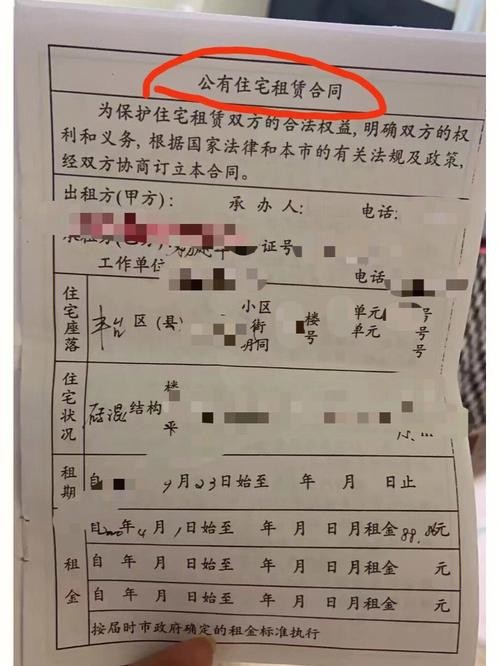 公有住宅租赁合同
为保护住宅租赁双方的合法权益,明确双方的权
利和义务,根据国家法律和本市的有关法规及政策,
经双方协商订立本合同。
出租方(甲方): 承办人: 电话:
证号
工作单位 电话
住宅座落 丰台区(县) 小区 街 胡同 楼号 单元 单元 号 号 号
住宅状况 砖混结构 楼 平
租期 自 9月23日始至 年 月 日止
租金 自 年4月1日始至 年 月 日月租金 元
自 年 月 日始至 年 月 日月租金 元
自 年 月 日始至 年 月 日月租金 元
按届时市政府确定的租金标准执行